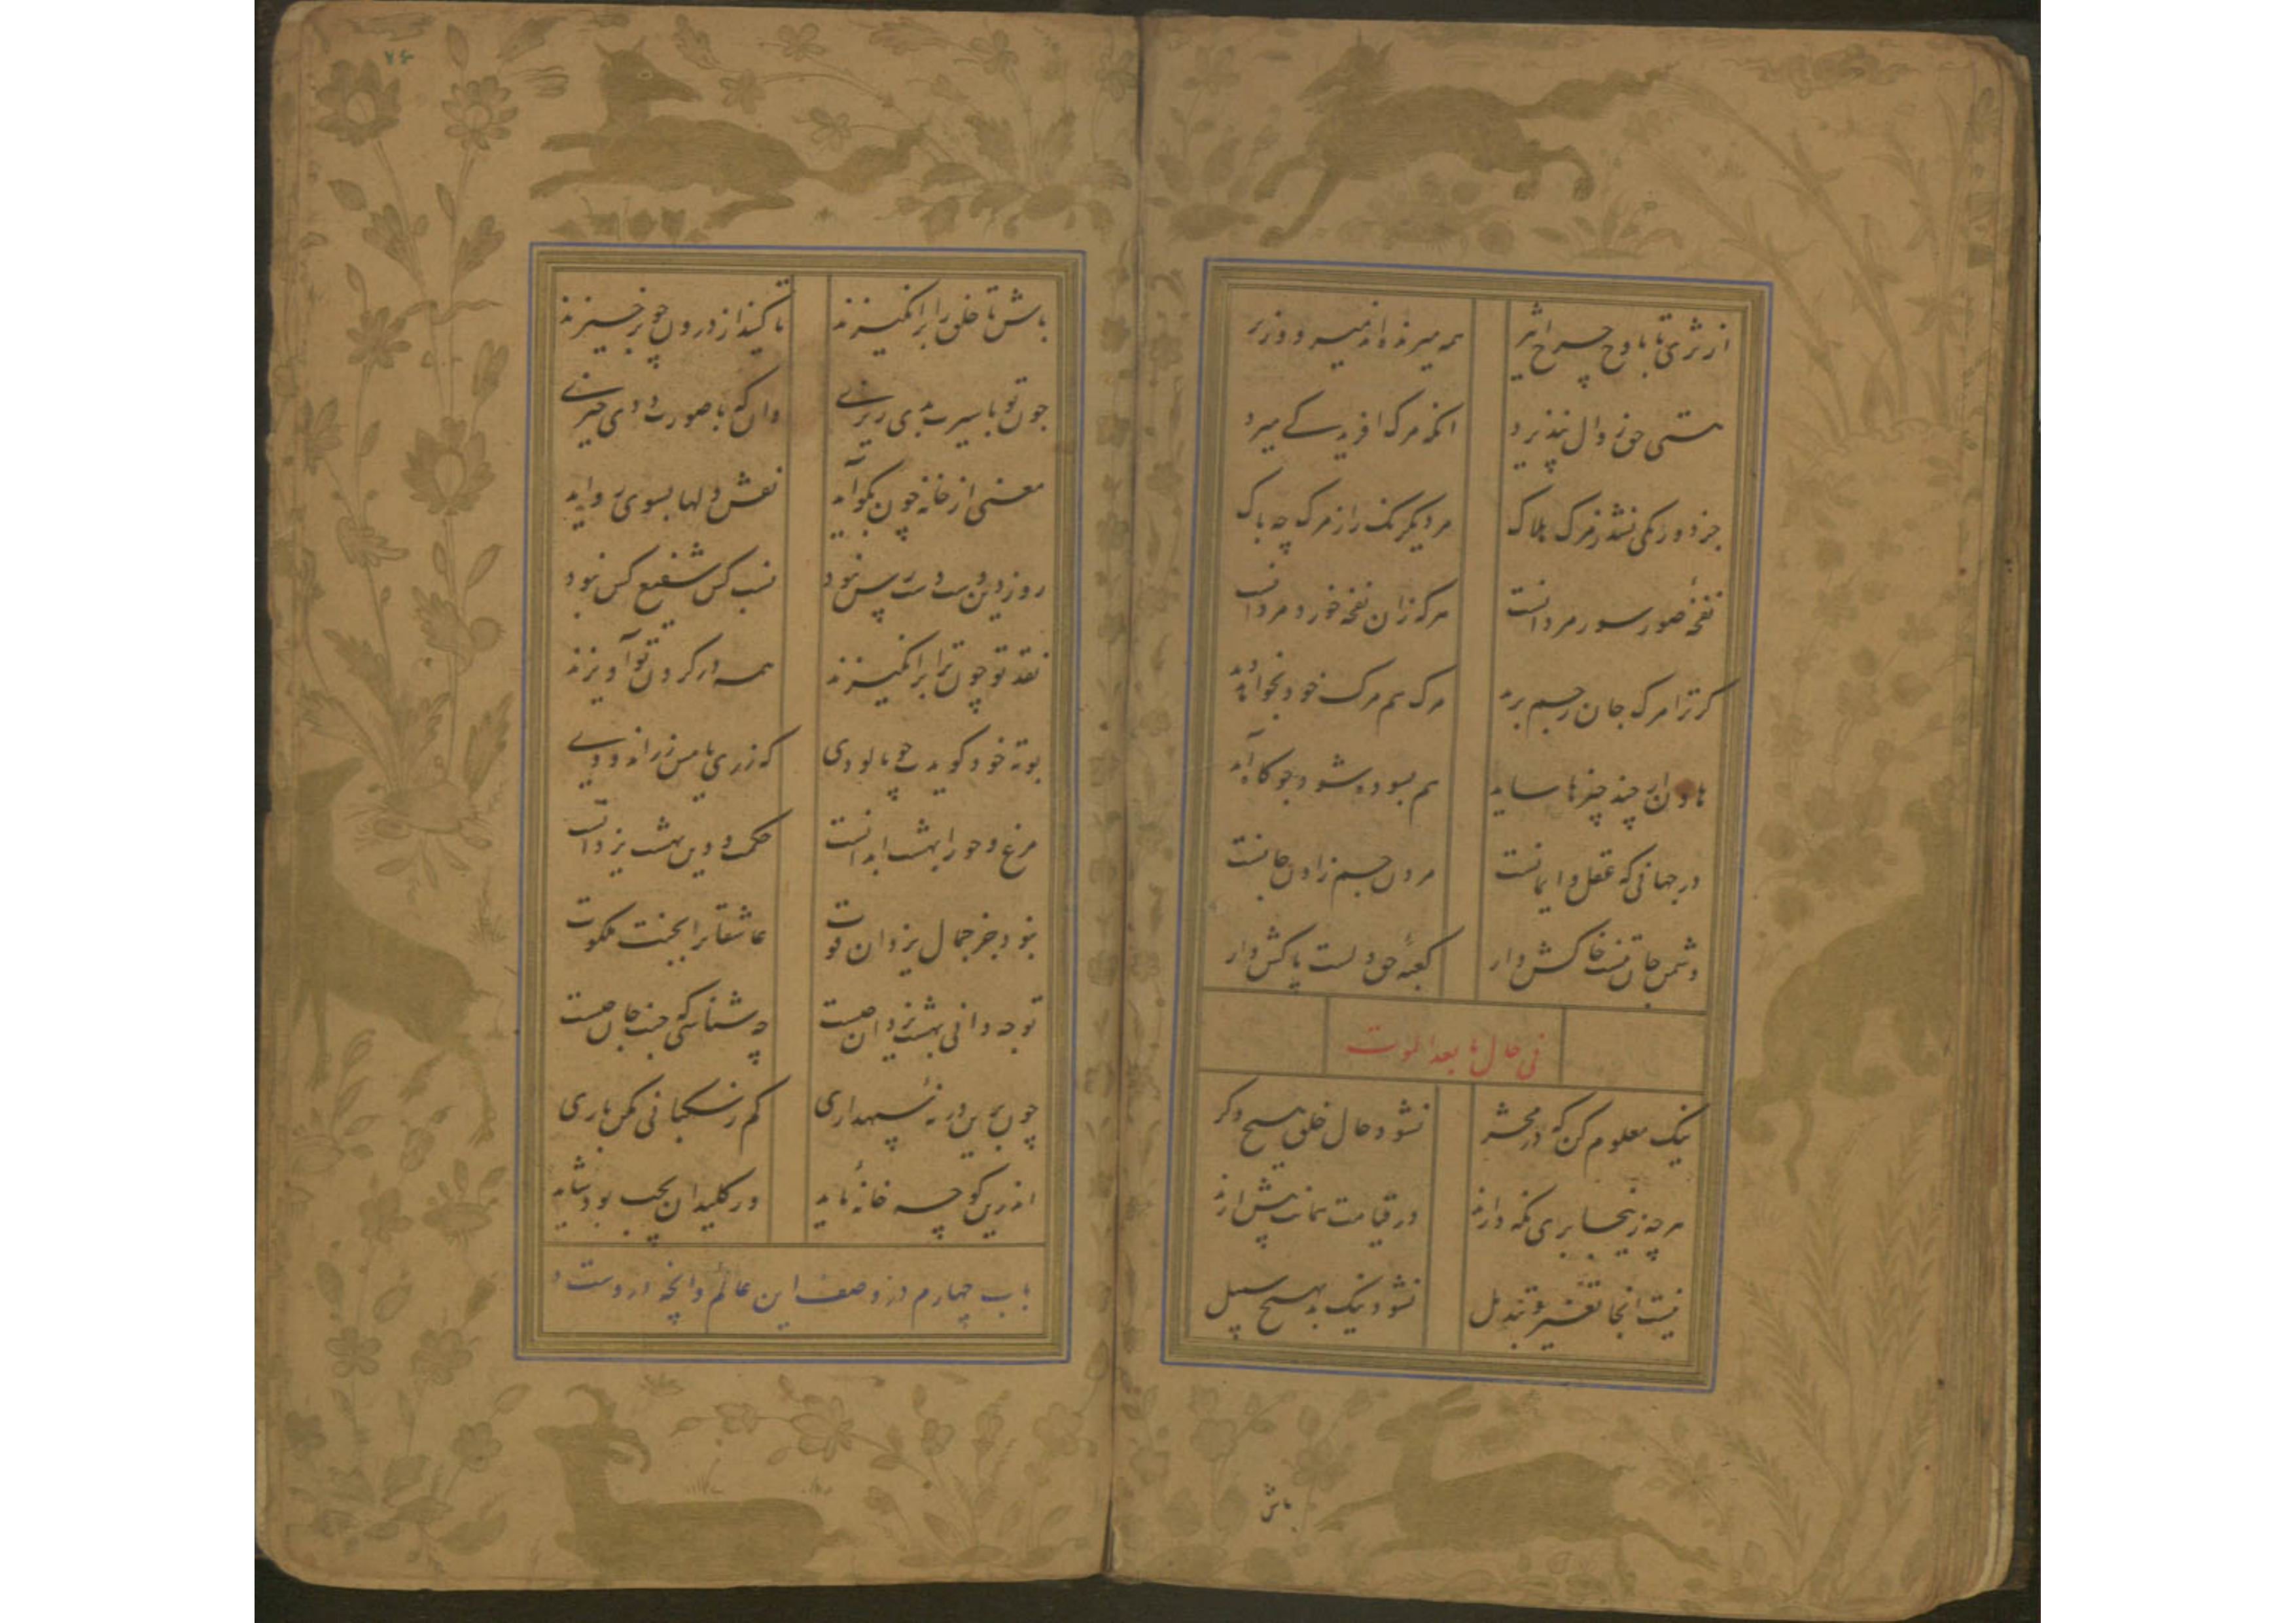 از ثری تا باوج چرخ اثیر
همه میرنده اند میر و وزیر
هستی حق زوال نپذیرد
انکه مرک افرید کے میرد
جز دو رنکی نشد ز مرک هلاک
مرد یکرنک را ز مرک چه باک
نفخهٔ صور سور مردانست
هرکه زان نفخه خورد مرد انست
کر ترا مرک جان ز جسم برد
مرک هم مرک خود بخواند
هاون ار چند چیزها ساید
هم بسوده شود چو کار اید
در جهانی که عقل و ایمانست
مردن جسم زادن جانست
دشمن جان تنست خاکش دار
کعبهٔ حق دلست پاکش دار
فی حال ما بعد الموت
نیک معلوم کن که در محشر
نشود حال خلق هیچ دکر
هرچه زینجا بری نکه دارند
در قیامت همانت پیش ارند
نیست انجا تغیر و تبدیل
نشود نیک بد بهیچ سبیل
باش
۷۶
باش تا خلق را برانکیزند
تا کیند از درون چو برخیزند
چون تو با سیرت بدی ریزے
دان که با صورت ددی خیزے
معنی از خانه چون بکو آید
نقش دلها بسوی رو اید
روز دین دست دست رس نبود
نسب کس شفیع کس نبود
نقد تو چون ترا برانکیزند
همه در کردن تو آویزند
بوته خود کویدت چو پالودی
که زری یا مس زر اندودے
مرغ و حور ابهشت ابدانست
حکمت و دین بهشت یزدانست
نبود جز جمال یزدان قوت
عاشقانرا بجنت ملکوت
تو چه دانی بهشت یزدان چیست
چه شناسی که جنت جان چیست
چون برین در نهٔ سپهداری
کم ز سکبانی مکن باری
اندرین کوچه خانهٔ باید
ور کلیدان بچپ بود شاید
باب چهارم در وصف این عالم و انچه دروست